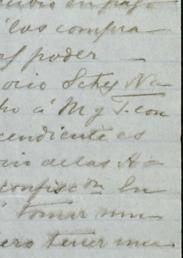 en pago
los compra
poder
orio Schez Na
ho á M y T. con
cendiente es
cio de las A=
confiscon. En
tomar mu-
ero tener una